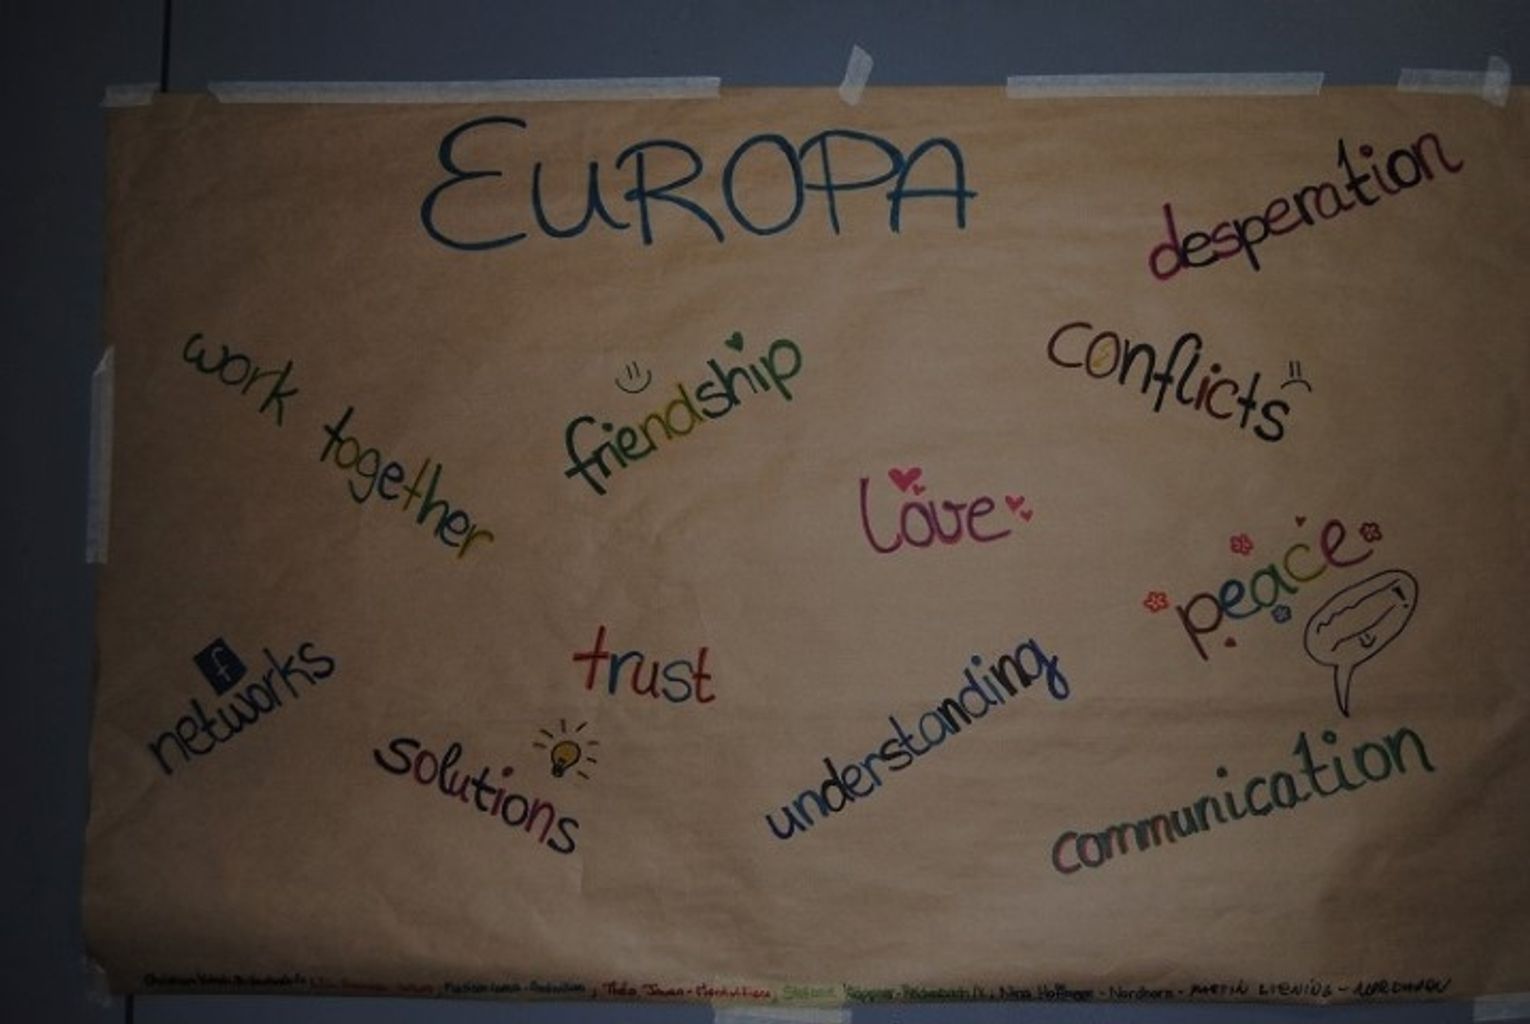 EUROPA
desperation
work together
friendship
conflicts
love
peace
f
networks
trust
solutions
understanding
communication
Nina Hoffmann - Nordhorn - MARTIN LIENING - NORDHORN